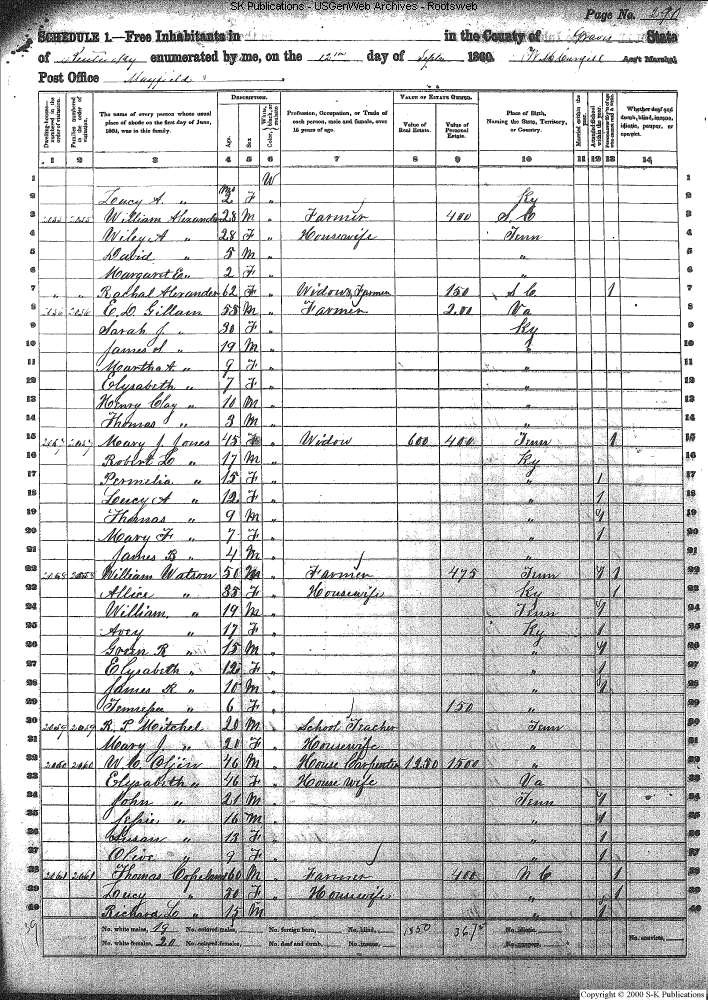 SK Publications - USGenWeb Archives - Rootsweb
Page No. 290
SCHEDULE 1.—Free Inhabitants in in the County of Graves State
of Kentucky enumerated by me, on the 12th day of Septr 1860. Ass't Marshal.
Post Office Mayfield
Dwelling-houses—numbered in the order of visitation.
Families numbered in the order of visitation.
The name of every person whose usual place of abode on the first day of June, 1860, was in this family.
DESCRIPTION.
Age.
Sex
White, black, or mulatto
Color,
Profession, Occupation, or Trade of each person, male and female, over 15 years of age.
VALUE OF ESTATE OWNED.
Value of Real Estate.
Value of Personal Estate.
Place of Birth, Naming the State, Territory, or Country.
Married within the year.
Attended School within the year.
Whether deaf and dumb, blind, insane, idiotic, pauper, or convict.
1 2 3 4 5 6 7 8 9 10 11 12 13 14
1 W 1
2 Lucy A. " 2 F " Ky 2
3 2055 2055 William Alexander 28 M " Farmer 400 S. C 3
4 Wiley A " 28 F " Housewife Tenn 4
5 David " 5 M " " 5
6 Margaret E " 2 F " " 6
7 " " Rachal Alexander 62 F " Widow, Farmer 150 S C 1 7
8 2056 2056 E. D. Gillam 55 M " Farmer 200 Va 8
9 Sarah J. " 30 F " Ky 9
10 James S " 19 M " " 10
11 Martha A " 9 F " " 11
12 Elysabeth " 7 F " " 12
13 Henry Clay " 10 M " " 13
14 Thomas " 3 M " " 14
15 2057 2057 Mary J. Jones 45 F " Widow 600 400 Tenn 1 15
16 Robert L " 17 M " Ky 16
17 Permelia " 15 F " " 1 17
18 Lucy A " 12 F " " 1 18
19 Thomas " 9 M " " 1 19
20 Mary F " 7 F " " 1 20
21 James B " 4 M " " 21
22 2058 2058 William Watson 50 M " Farmer 475 Tenn 1 1 22
23 Allice " 35 F " Housewife Ky 1 23
24 William " 19 M " Tenn 1 24
25 Avey " 17 F " Ky 1 25
26 Green R " 15 M " " 1 26
27 Elysabeth " 12 F " " 1 27
28 James R " 10 M " " 1 28
29 " 6 F " 150 " 29
30 2059 2059 R. P. Mitchel 20 M " School Teacher Tenn 30
31 Mary J. " 20 F " Housewife " 31
32 2060 2060 W. C. 46 M " House Carpenter 1250 1500 " 32
33 Elysabeth " 46 F " House wife Va 33
34 John " 21 M " Tenn 1 34
35 " 16 M " " 1 35
36 Susan " 13 F " " 1 36
37 Olive " 9 F " " 1 37
38 2061 2061 Thomas Copeland 60 M " Farmer 400 N C 1 38
39 Lucy " 50 F " Housewife " 1 39
40 Richard L " 15 M " " 1 40
39
No. white males, 19 No. colored males, No. foreign born, No. blind, 1850 3675 No. idiotic,
No. white females, 20 No. colored females, No. deaf and dumb, No. insane, No. paupers, No. convicts,
Copyright © 2000 S-K Publications